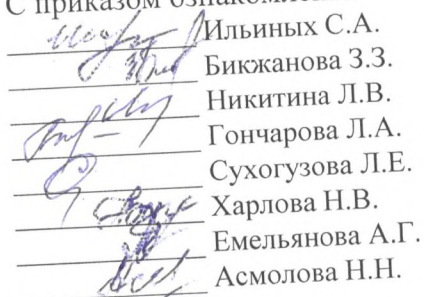 С приказом ознакомлены
Ильиных С.А.
Бикжанова З.З.
Никитина Л.В.
Гончарова Л.А.
Сухогузова Л.Е.
Харлова Н.В.
Емельянова А.Г.
Асмолова Н.Н.